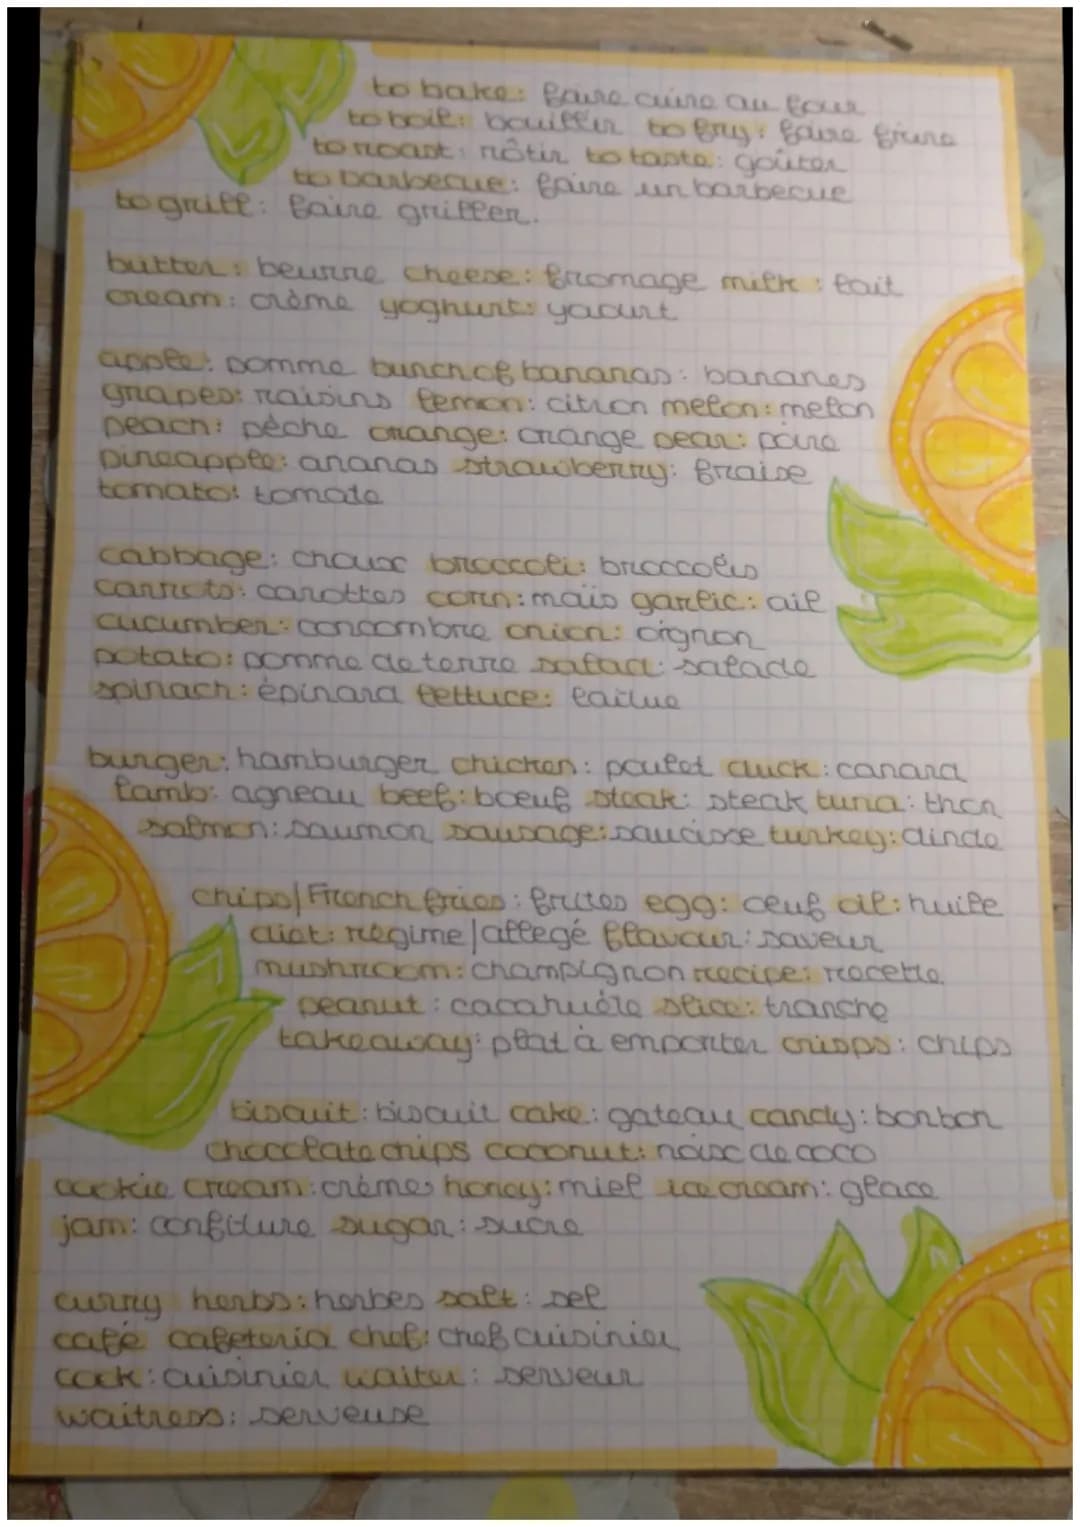 to bake: faire cuire au four
to boil: bouillir to fry: faire frire
to roast: rôtir to taste: goûter
to barbecue: faire un barbecue
to grill: faire griller.
butter: beurre cheese: fromage milk: lait
cream: crème yoghurt: yaourt
apple: pomme bunch of bananas: bananes
grapes: raisins lemon: citron melon: melon
peach: pêche orange: orange pear: poire
pineapple: ananas strawberry: fraise
tomato: tomate
cabbage: choux broccoli: broccolis
carrots: carottes corn: maïs garlic: ail
cucumber: concombre onion: oignon
potato: pomme de terre salad: salade
spinach: épinard lettuce: laitue
burger: hamburger chicken: poulet duck: canard
lamb: agneau beef: bœuf steak: steak tuna: thon
salmon: saumon sausage: saucisse turkey: dinde
chips/French fries: frites egg: œuf oil: huile
diet: régime/allegé flavour: saveur
mushroom: champignon recipe: recette
peanut: cacahuète slice: tranche
takeaway: plat à emporter crisps: chips
biscuit: biscuit cake: gateau candy: bonbon
chocolate chips coconut: noix de coco
cookie cream: crème honey: miel ice cream: glace
jam: confiture sugar: sucre
curry herbs: herbes salt: sel
café cafeteria chef: chef cuisinier
cook: cuisinier waiter: serveur
waitress: serveuse